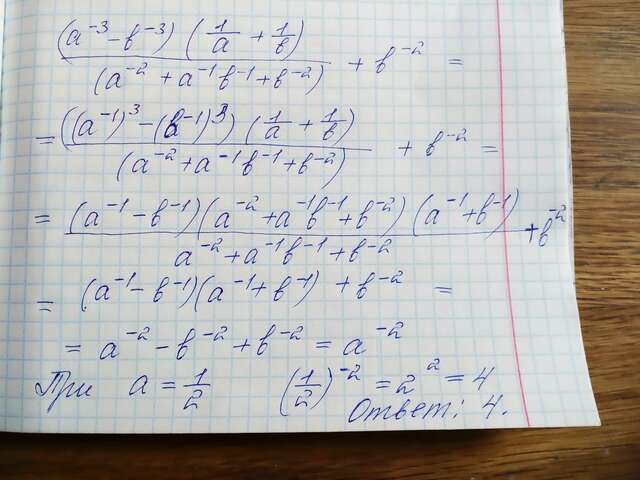 (a⁻³ - b⁻³) (1/a + 1/b) / (a⁻² + a⁻¹b⁻¹ + b⁻²) + b⁻² =
= ((a⁻¹)³ - (b⁻¹)³) (1/a + 1/b) / (a⁻² + a⁻¹b⁻¹ + b⁻²) + b⁻² =
= (a⁻¹ - b⁻¹)(a⁻² + a⁻¹b⁻¹ + b⁻²)(a⁻¹ + b⁻¹) / a⁻² + a⁻¹b⁻¹ + b⁻² + b⁻²
= (a⁻¹ - b⁻¹)(a⁻¹ + b⁻¹) + b⁻² =
= a⁻² - b⁻² + b⁻² = a⁻²
При a = 1/2 (1/2)⁻² = 2² = 4
Ответ: 4.